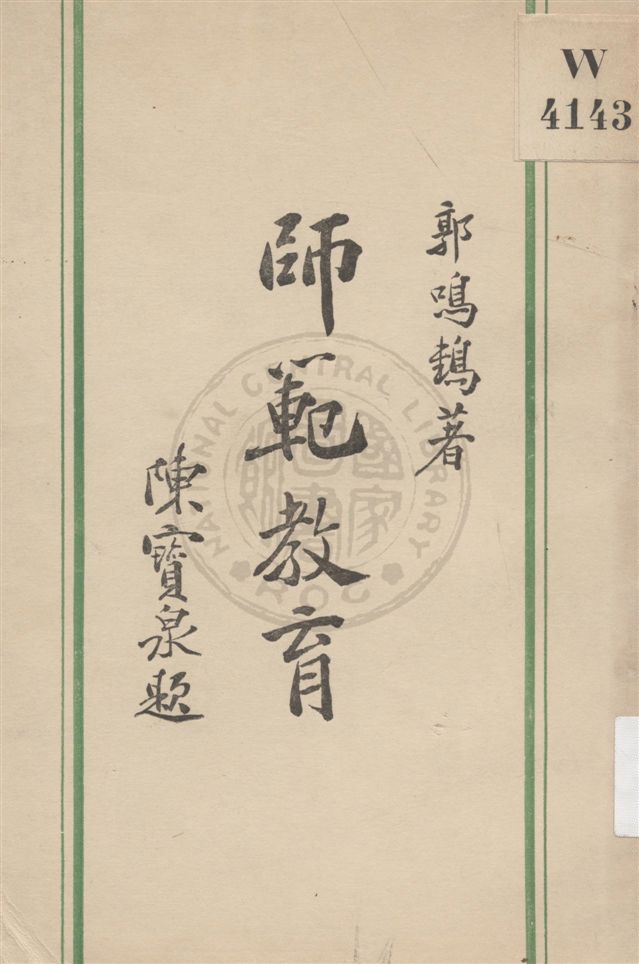 W
4143
郭鳴鶴著
師範教育
陳寶泉題
NATIONAL CENTRAL LIBRARY
COPY
國家圖書館